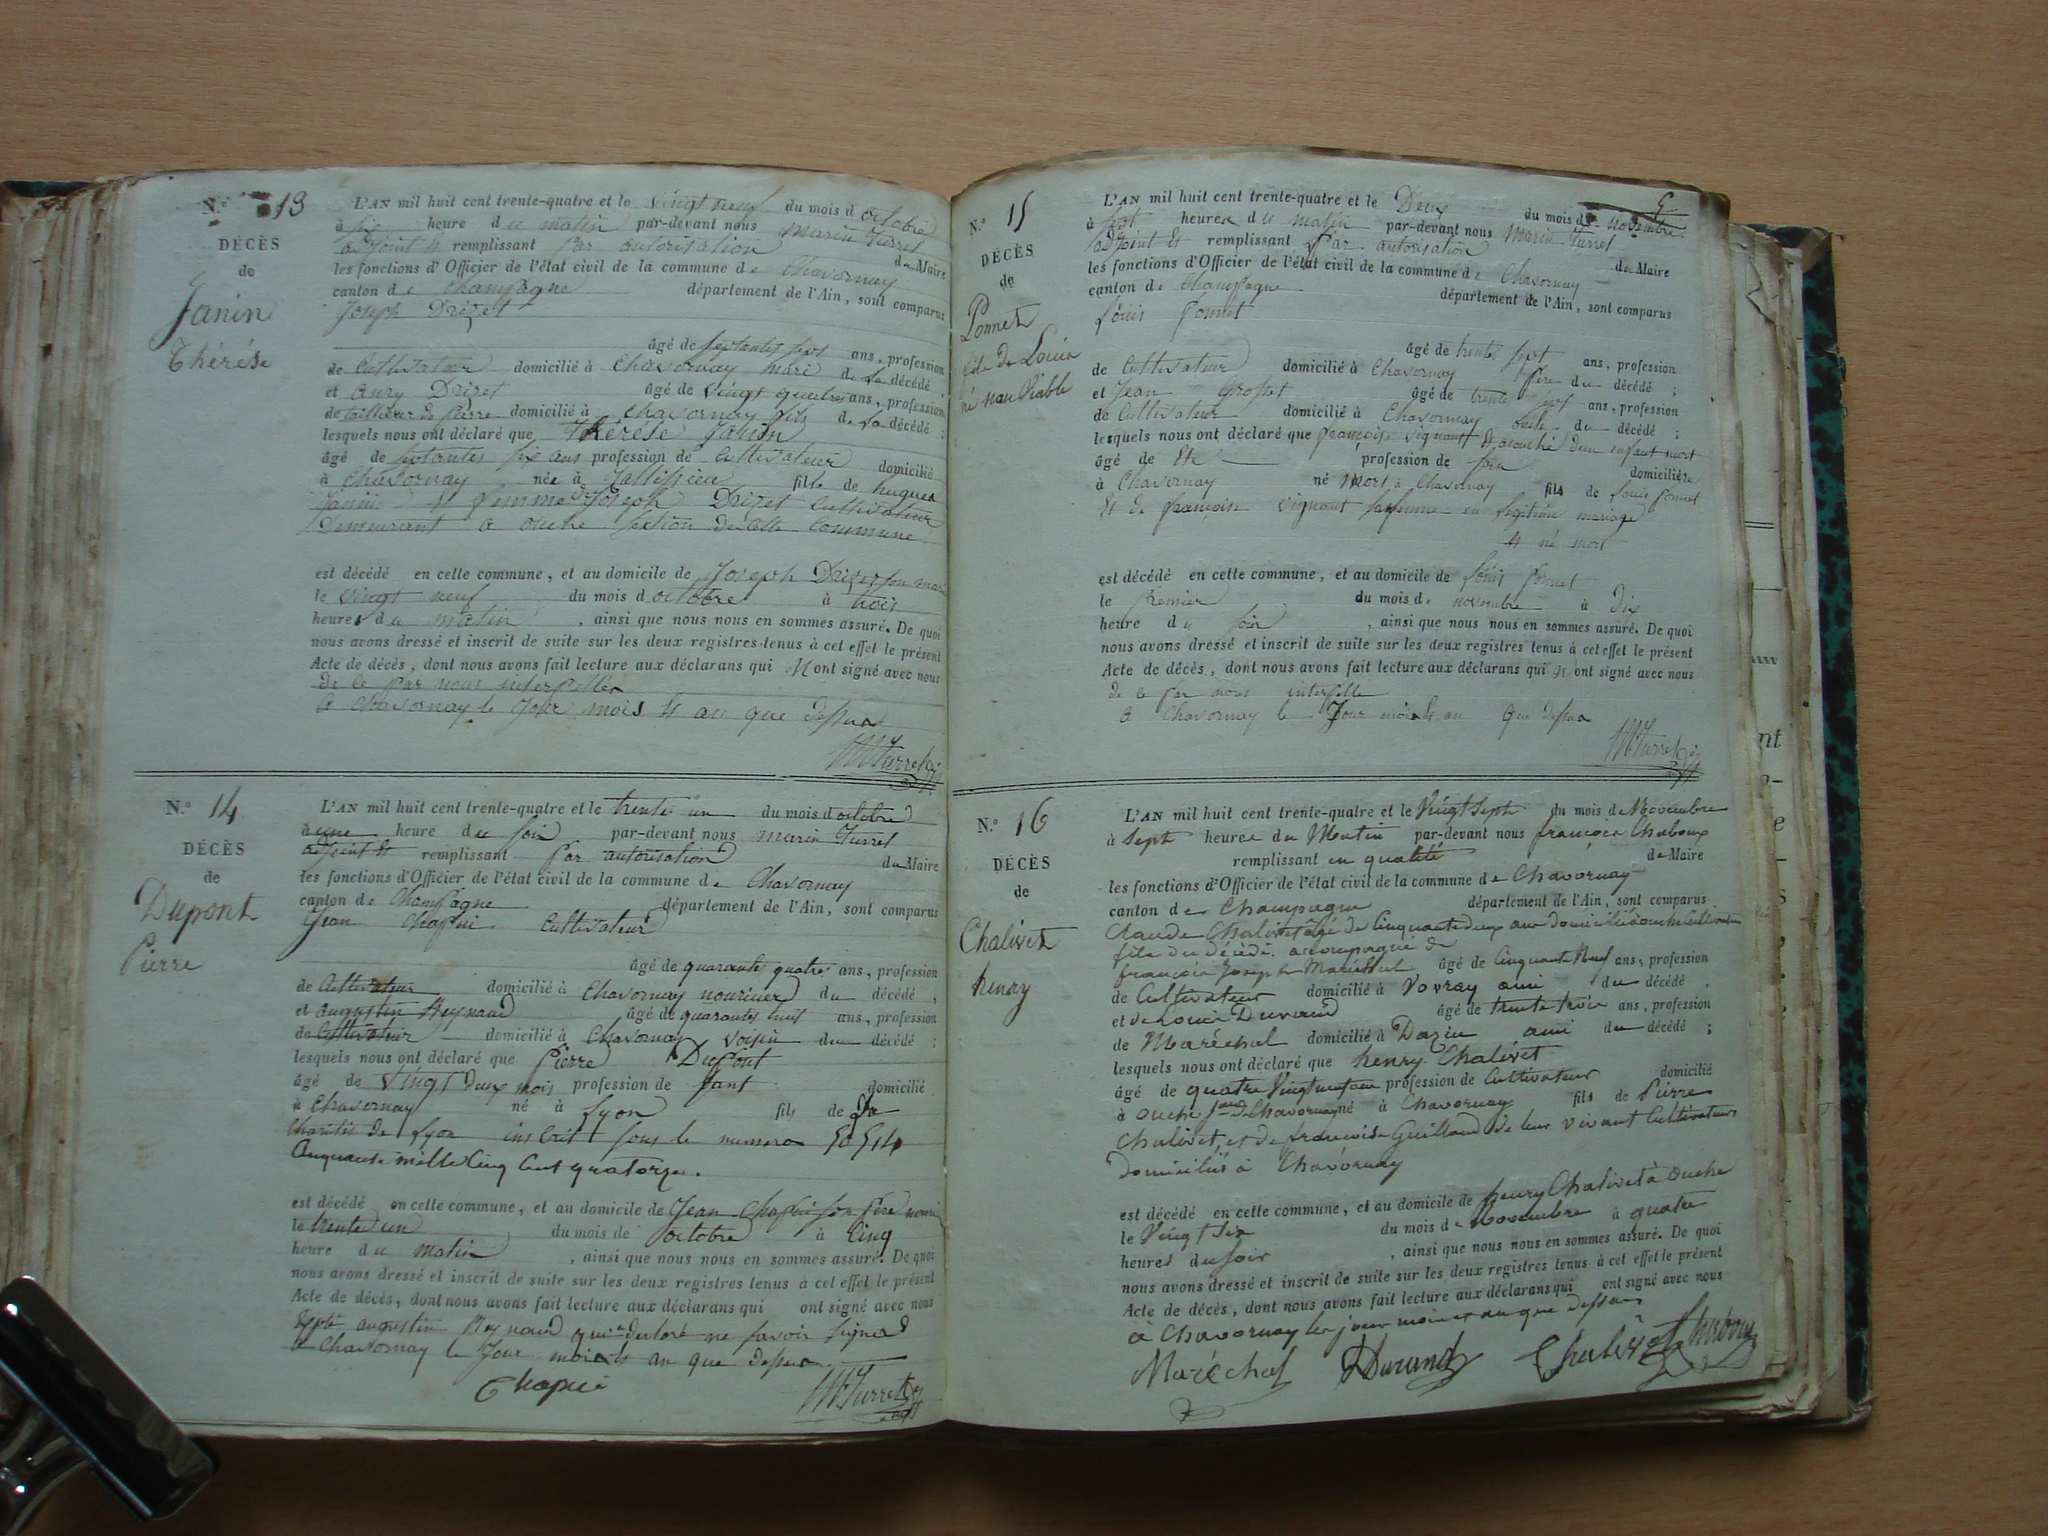 N.o 13
DÉCÈS
de
Janin
Thérése
L'AN mil huit cent trente-quatre et le vingt neuf du mois d octobre
à six heure du matin par-devant nous Marin Turrel
adjoint et remplissant par autorisation du Maire
les fonctions d'Officier de l'état civil de la commune de Chavornay
canton de Champagne département de l'Ain, sont comparus
Joseph Drizet
âgé de septantes six ans, profession
de Cultivateur domicilié à Chavornay mari de la décédé
et Anry Drizet âgé de vingt quatres ans, profession
de tailleur de pierre domicilié à Chavornay fils de la décédé ;
lesquels nous ont déclaré que Thérése Janin
âgé de septantes six ans profession de Cultivateur domicilié
à Chavornay née à Tallissieu fille de hugues
Janin et femme de Joseph Drizet Cultivateur
Demeurant a ouche section de cette commune
est décédé en cette commune, et au domicile de Joseph Drizet son mari
le vingt neuf du mois d octobre à trois
heures du matin, ainsi que nous nous en sommes assuré. De quoi
nous avons dressé et inscrit de suite sur les deux registres tenus à cet effet le présent
Acte de décès, dont nous avons fait lecture aux déclarans qui n ont signé avec nous
de ce par nous interpellés
a Chavornay le Jour mois et an que dessus
M Turrel
N.o 14
DÉCÈS
de
Dupont
Pierre
L'AN mil huit cent trente-quatre et le trente un du mois d octobre
à une heure du soir par-devant nous marin Turrel
adjoint et remplissant par autorisation du Maire
les fonctions d'Officier de l'état civil de la commune de Chavornay
canton de Champagne département de l'Ain, sont comparus
Jean Chapui Cultivateur
âgé de quarante quatres ans, profession
de Cultivateur domicilié à Chavornay nouricier du décédé,
et augustin Reynaud âgé de quarantes huit ans, profession
de Cultivateur domicilié à Chavornay voisin du décédé ;
lesquels nous ont déclaré que Pierre Dupont
âgé de vingt deux mois profession de sant domicilié
à Chavornay né à Lyon fils de la
charités de Lyon inscrit sous le numero 50514
cinquante mille cinq cent quatorze.
est décédé en cette commune, et au domicile de Jean Chapui son pére
le trente un du mois de octobre à cinq
heure du matin, ainsi que nous nous en sommes assuré. De quoi
nous avons dressé et inscrit de suite sur les deux registres tenus à cet effet le présent
Acte de décès, dont nous avons fait lecture aux déclarans qui ont signé avec nous
augustin Reynaud qui a declaré ne savoir signer
a Chavornay le Jour mois et an que dessus
Chapui
M Turrel
N.o 15
DÉCÈS
de
Ponnet
fils de Louis
né non Viable
L'AN mil huit cent trente-quatre et le Deux du mois de novembre
à sept heures du matin par-devant nous Marin Turrel
adjoint et remplissant par autorisation du Maire
les fonctions d'Officier de l'état civil de la commune de Chavornay
canton de Champagne département de l'Ain, sont comparus
Louis Ponnet
âgé de trente sept ans, profession
de Cultivateur domicilié à Chavornay pére du décédé ;
et Jean Grosset âgé de trente sept ans, profession
de Cultivateur domicilié à Chavornay du décédé ;
lesquels nous ont déclaré que françoise vignant et acouché d'un enfant mort
âgé de profession de domiciliée
à Chavornay né mort à Chavornay fils de Louis Ponnet
et de françoise vignant sa femme en légitime mariage
et né mort
est décédé en cette commune, et au domicile de Louis Ponnet
le premier du mois de novembre à dix
heure du soir, ainsi que nous nous en sommes assuré. De quoi
nous avons dressé et inscrit de suite sur les deux registres tenus à cet effet le présent
Acte de décès, dont nous avons fait lecture aux déclarans qui n ont signé avec nous
de ce par nous interpellé
a Chavornay le Jour mois et an que dessus
M Turrel
N.o 16
DÉCÈS
de
Chalivet
henry
L'AN mil huit cent trente-quatre et le Vingt Sept du mois de Novembre
à sept heures du Matin par-devant nous françois Chaboux
remplissant en qualité de Maire
les fonctions d'Officier de l'état civil de la commune de Chavornay
canton de Champagne département de l'Ain, sont comparus
Claude Chalivet âgé de Cinquante deux ans domicilié à ouche Cultivateur
fils du décédé accompagné de
françois Joseph Maréchal âgé de Cinquante Neuf ans, profession
de Cultivateur domicilié à Vovray ami du décédé,
et de Louis Durand âgé de trente trois ans, profession
de Maréchal domicilié à Dazin ami du décédé ;
lesquels nous ont déclaré que henry Chalivet
âgé de quatre Vingt un ans profession de Cultivateur domicilié
à ouche Chavornay né à Chavornay fils de Pierre
Chalivet, et de francoise Guilland de leur vivant Cultivateurs
domiciliés à Chavornay
est décédé en cette commune, et au domicile de henry Chalivet à ouche
le Vingt Six du mois de Novembre à quatre
heures du soir, ainsi que nous nous en sommes assuré. De quoi
nous avons dressé et inscrit de suite sur les deux registres tenus à cet effet le présent
Acte de décès, dont nous avons fait lecture aux déclarans qui ont signé avec nous
à Chavornay les jour mois et an que dessus
Maréchal Durand Chalivet Chaboux